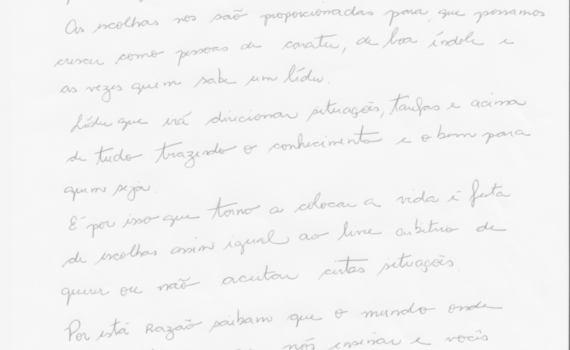 As escolhas nos são proporcionadas para que possamos
crescer como pessoas de carater, de boa índole e
as vezes quem sabe um líder.
Líder que irá direcionar situações, tarefas e acima
de tudo trazendo o conhecimento e o bem para
quem seja.
É por isso que torno a colocar a vida é feita
de escolhas assim igual ao livre arbítrio de
querer ou não aceitar certas situações
Por está Razão saibam que o mundo onde
nós ensinar e vocês